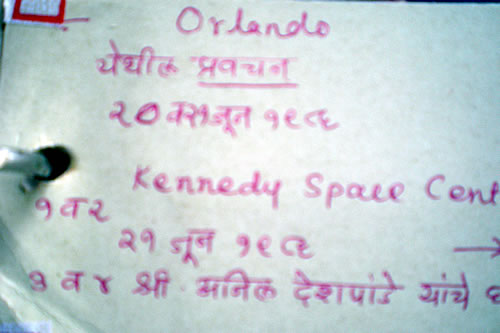 Orlando
येथील प्रवचन
२० व २१ जून १९८६
Kennedy Space Cent
१ व २
२१ जून १९८६ →
३ व ४ श्री. अनिल देशपांडे यांचे